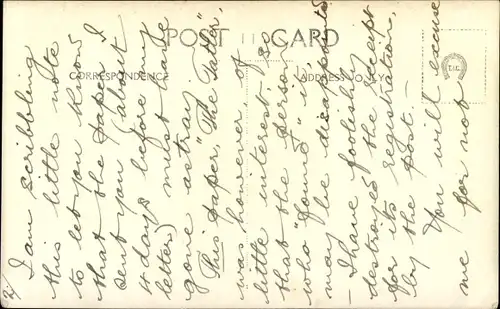 POST CARD
CORRESPONDENCE
ADDRESS ONLY
2/
I am scribbling
this little note
to let you know
that the paper I
sent you (about
4 days before my
letter) must have
gone astray.
This paper, "The Tatler,"
was however, of
little interest, so
that the person
who "found" it,
may be disappointed
- I have foolishly
destroyed the receipt
for its registration,
by the post. -
You will excuse
me for not